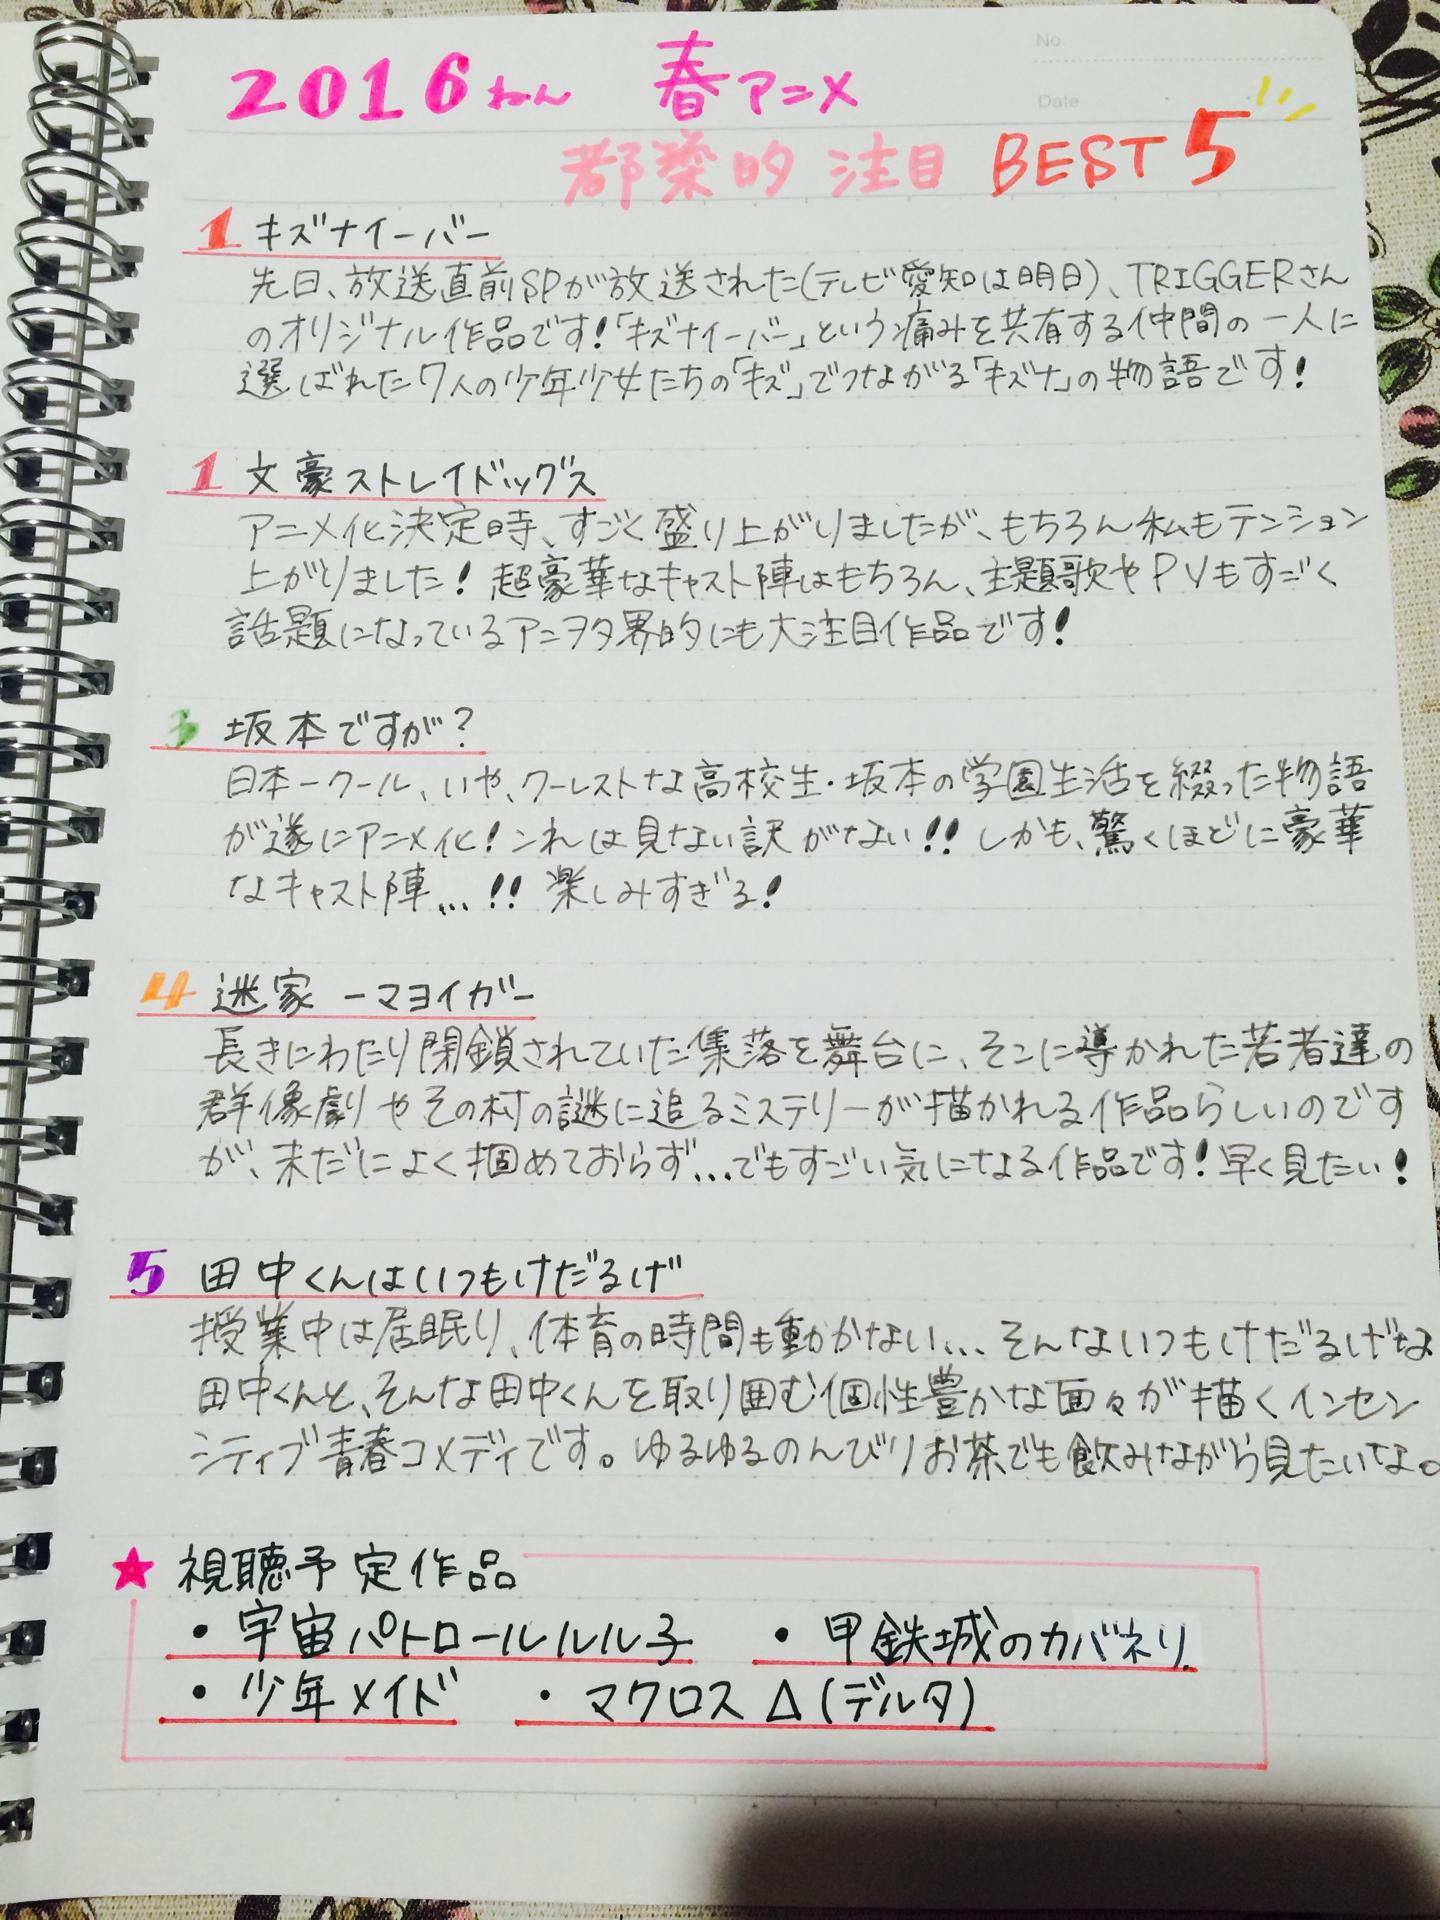 No.
Date
2016ねん 春アニメ
都築的 注目 BEST5
1 キズナイーバー
先日、放送直前SPが放送された(テレビ愛知は明日)、TRIGGERさん
のオリジナル作品です!「キズナイーバー」という痛みを共有する仲間の一人に
選ばれた7人の少年少女たちの「キズ」でつながる「キズナ」の物語です!
1 文豪ストレイドッグス
アニメ化決定時、すごく盛り上がりましたが、もちろん私もテンション
上がりました!超豪華なキャスト陣はもちろん、主題歌やPVもすごく
話題になっているアニヲタ界的にも大注目作品です!
3 坂本ですが?
日本一クール、いや、クーレストな高校生・坂本の学園生活を綴った物語
が遂にアニメ化!これは見ない訳がない!!しかも、驚くほどに豪華
なキャスト陣...!!楽しみすぎる!
4 迷家 ーマヨイガー
長きにわたり閉鎖されていた集落を舞台に、そこに導かれた若者達の
群像劇やその村の謎に迫るミステリーが描かれる作品らしいのです
が、未だによく掴めておらず...でもすごい気になる作品です!早く見たい!
5 田中くんはいつもけだるげ
授業中は居眠り、体育の時間も動かない... そんないつもけだるげな
田中くんと、そんな田中くんを取り囲む個性豊かな面々が描くインセン
シティブ青春コメディです。ゆるゆるのんびりお茶でも飲みながら見たいな。
★ 視聴予定作品
・宇宙パトロールルル子 ・甲鉄城のカバネリ
・少年メイド ・マクロスΔ(デルタ)